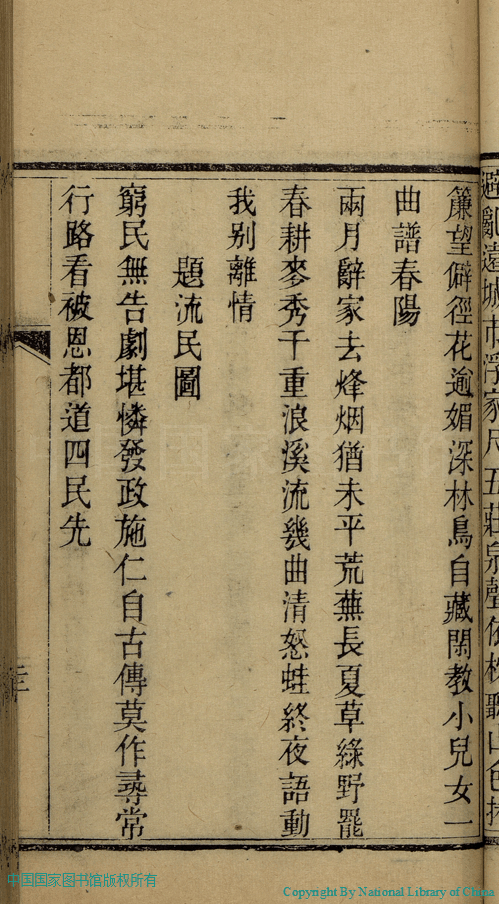 避亂遠城市浮家尺五莊泉聲依枕聽山色捲
簾望僻徑花逾媚深林鳥自藏閑教小兒女一
曲譜春陽
兩月辭家去烽烟猶未平荒蕪長夏草綠野罷
春耕麥秀千重浪溪流幾曲清怒蛙終夜語動
我别離情
題流民圖
窮民無告劇堪憐發政施仁自古傳莫作尋常
行路看被恩都道四民先
中国国家图书馆版权所有
Copyright By National Library of China